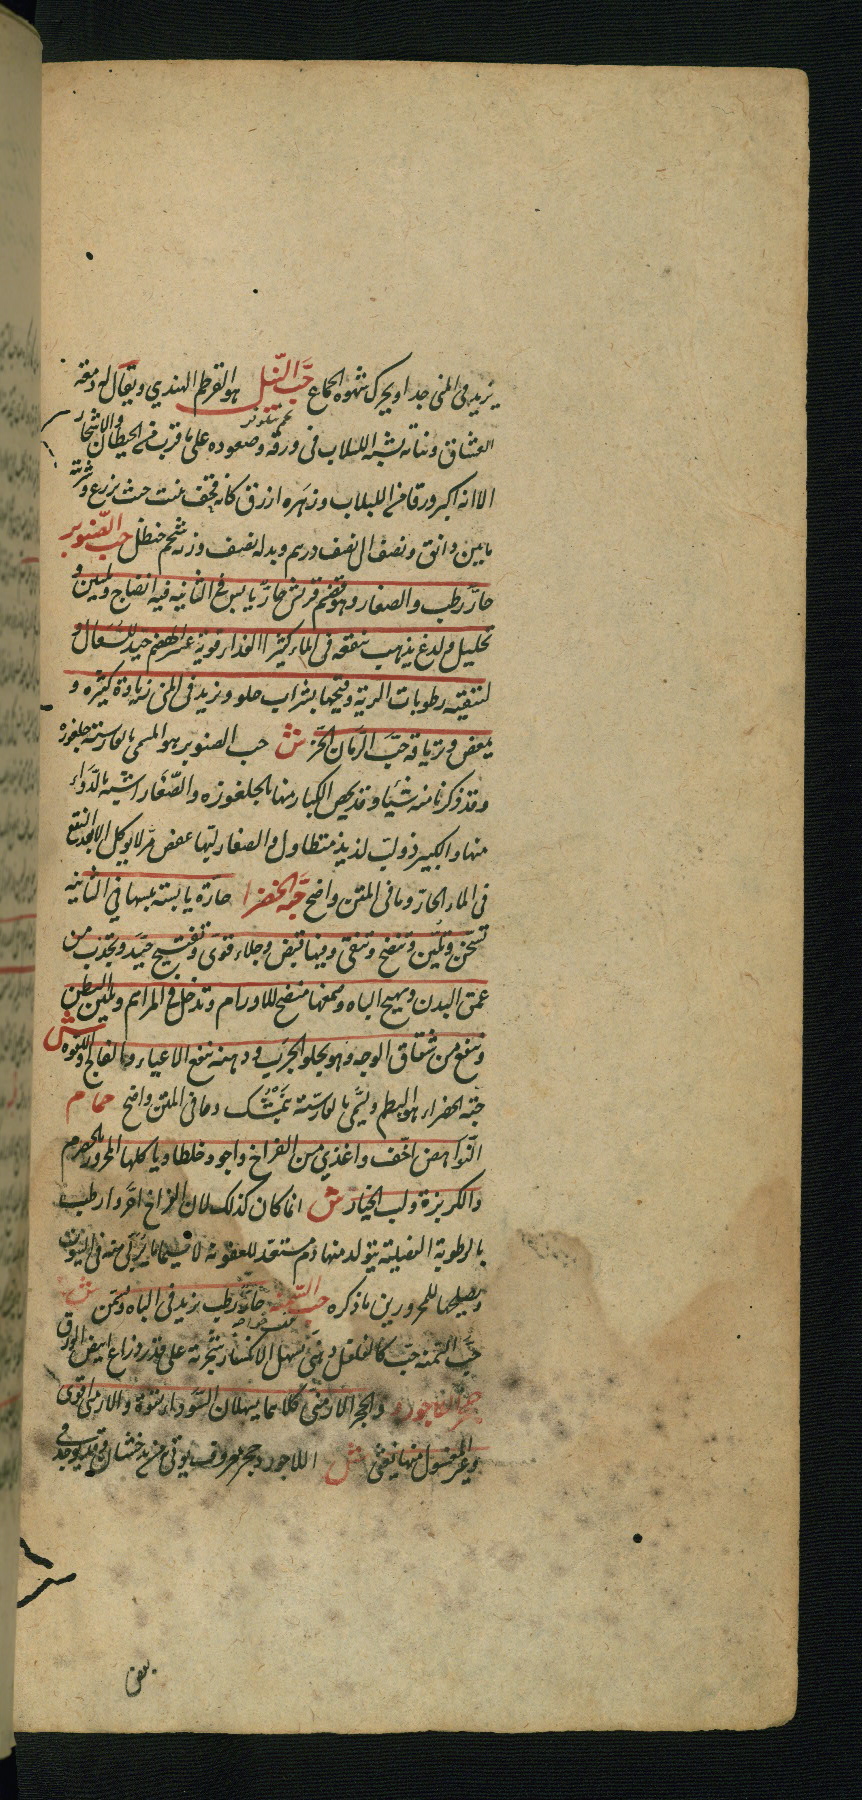 يزيد فى المنى جدا ويحرك شهوه الجماع حَبّ النّيل هو القرطم الهندي ويقال له دمعة
العشاق ونباته يشبه اللبلاب فى ورقه وصعوده على ما قرب من الحيطان والاشجار
الا انه اكبر ورقا من اللبلاب وزهره ازرق كانه قمع ينبت حيث يزرع وشربته
ما بين دانق ونصف الى نصف درهم وبدله نصف وزنه شحم حنظل حب الصّنوبر
حارّ رطب والصغار وهو قضم قريش حارّ يابس فى الثانيه فيه انضاج وتليين و
تحليل ولدغ يذهب بنقعه فى الماء كثير الغذاء قويه عسر الهضم جيّد للسّعال و
لتنقيته رطوبات الرية وقيحها بشراب حلو ويزيد فى المنى زيادة كثيره و
يمغص وترياقه حبّ الرّمان المزّ ش حب الصنوبر هو المسمى بالفارسيّة جلغوزه
وقد ذكرنا منه شيئا وقد يخص الكبار منها بالجلغوزه والصّغار اشبه بالدّواء
منها والكبير ذو لبّ لذيذ متطاول والصغار لبّها عفص مّر لا يؤكل الا بعد النقع
فى الماء الحارّ وما فى المتن واضح حبّة الخضرا حارّة يابسة يبسها فى الثانيه
تسخّن وتليّن وتنضج وتنقى وفيها قبض وجلاء قوى وتفتيح جيّد ويجذب من
عمق البدن ويهيج الباه وصمغها منضج للاورام وتدخل فى المراهم ويلين البطن
وينفع من شقاق الوجه وهو يجلو الجرب ودهنه ينفع الاعياء والفالج واللقوه ش
حبّه الخضراء هو البطم ويسّمى بالفارسيّة بنشك وما فى المتن واضح حمام
النّواهض اخّف واغذي من الفراخ واجود خلطا وياكلها المحرور بالحصرم
والكزبرة ولب الخيار ش انما كان كذلك لان الفراخ احّر وارطب
بالرطوبة الفضلية يتولد منها دم مستعد للعفونة لا سيما ما يربّى منه فى البيوت
ويصلحها للمحرورين ما ذكره حب السّمنه حارّ رطب يزيد فى الباه ويسّمن ش
حبّ السّمنه حبّ كالفلفل دهنى سهل الانكسار شجرته على قدر ذراع ابيض الورق
حجر اللاجورد والحجر الارمنى كلاهما يسهلان السّوداء بقوة والارمنى اقوى
وغير المغسول منها يغثى ش اللاجورد حجر معروف يؤتى من بدخشان وقد يوجد فى
بعض